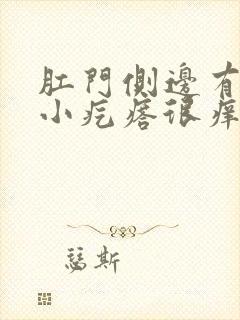 肛門側邊有
小疙瘩很痒
瑟斯